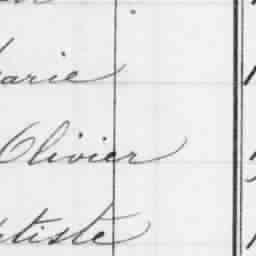 arie
Olivier
tiste